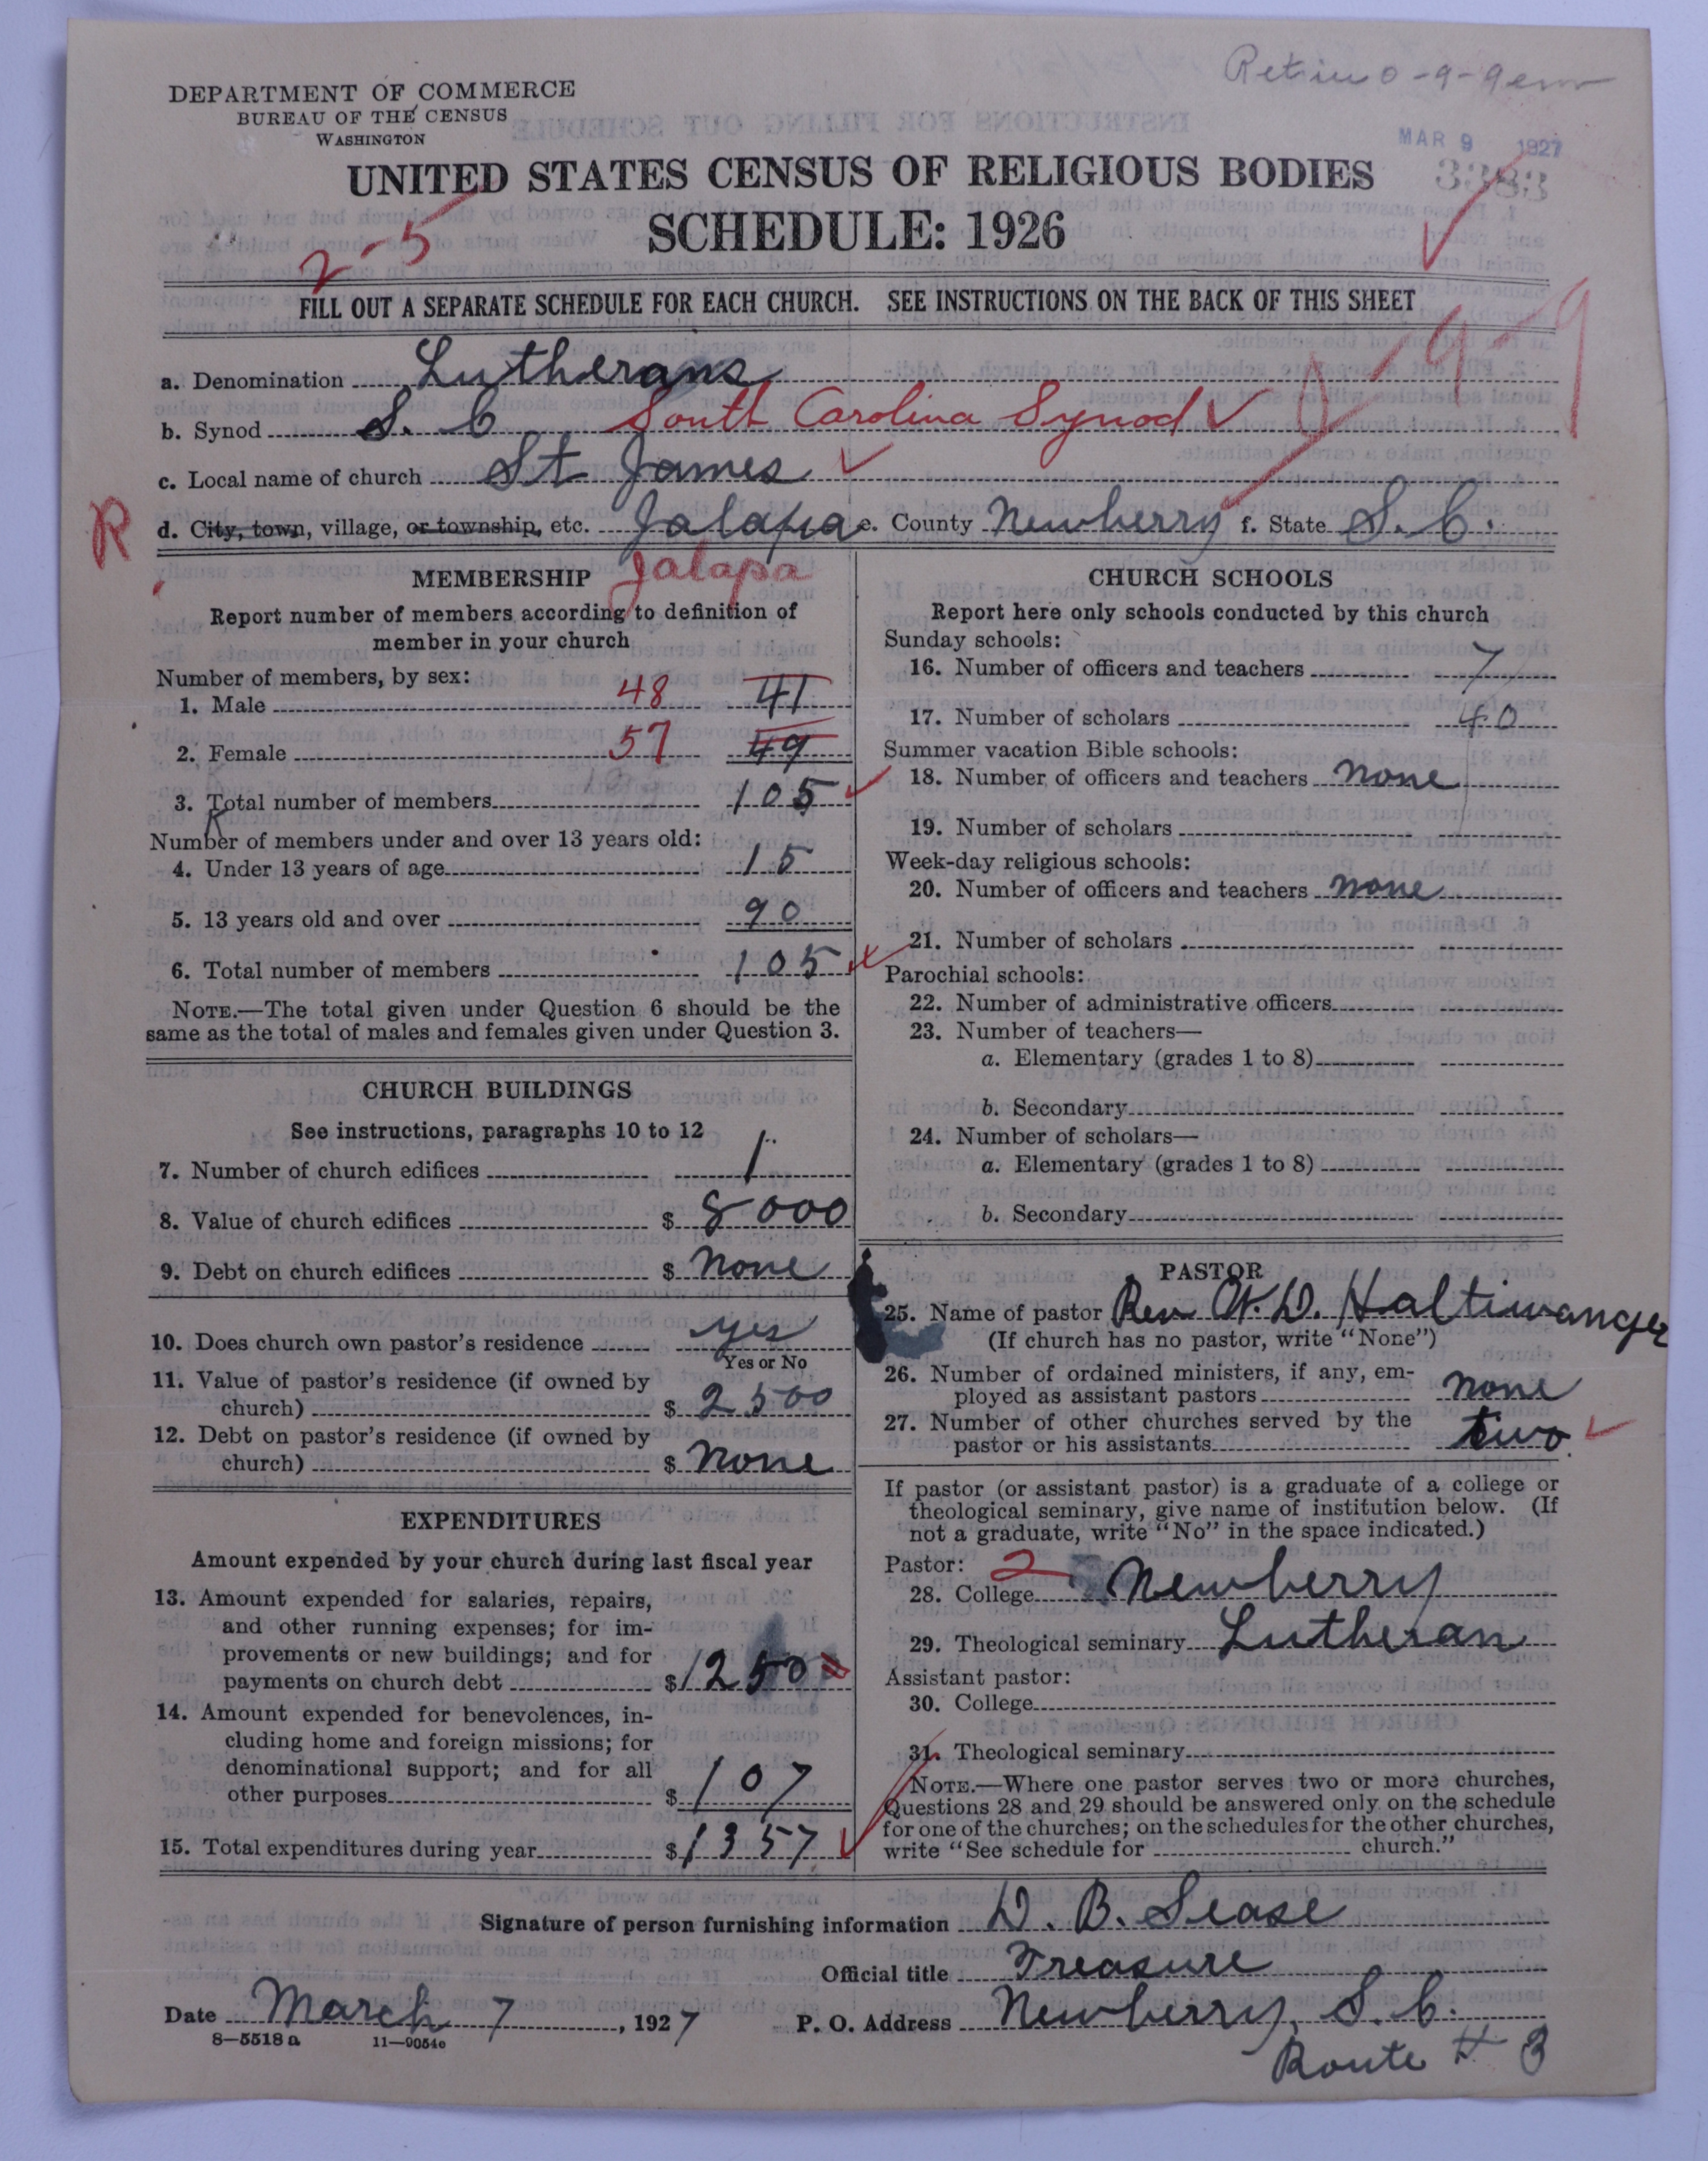 DEPARTMENT OF COMMERCE
BUREAU OF THE CENSUS
WASHINGTON
MAR 9 1927
3383
UNITED STATES CENSUS OF RELIGIOUS BODIES
SCHEDULE: 1926
2-5
FILL OUT A SEPARATE SCHEDULE FOR EACH CHURCH. SEE INSTRUCTIONS ON THE BACK OF THIS SHEET
0-9-9
a. Denomination Lutherans
b. Synod S. C South Carolina Synod
c. Local name of church St James
R
d. City, town, village, or township, etc. Jalapa e. County Newberry f. State S. C.
MEMBERSHIP Jalapa
Report number of members according to definition of
member in your church
Number of members, by sex:
1. Male 48 41
2. Female 57 49
3. Total number of members 105
Number of members under and over 13 years old:
4. Under 13 years of age 15
5. 13 years old and over 90
6. Total number of members 105
NOTE.—The total given under Question 6 should be the
same as the total of males and females given under Question 3.
CHURCH BUILDINGS
See instructions, paragraphs 10 to 12
7. Number of church edifices 1
8. Value of church edifices $ 8000
9. Debt on church edifices $ none
10. Does church own pastor's residence yes
Yes or No
11. Value of pastor's residence (if owned by
church) $ 2500
12. Debt on pastor's residence (if owned by
church) $ none
EXPENDITURES
Amount expended by your church during last fiscal year
13. Amount expended for salaries, repairs,
and other running expenses; for im-
provements or new buildings; and for
payments on church debt $ 1250
14. Amount expended for benevolences, in-
cluding home and foreign missions; for
denominational support; and for all
other purposes $ 107
15. Total expenditures during year $ 1357
CHURCH SCHOOLS
Report here only schools conducted by this church
Sunday schools:
16. Number of officers and teachers 7
17. Number of scholars 40
Summer vacation Bible schools:
18. Number of officers and teachers none
19. Number of scholars
Week-day religious schools:
20. Number of officers and teachers none
21. Number of scholars
Parochial schools:
22. Number of administrative officers
23. Number of teachers—
a. Elementary (grades 1 to 8)
b. Secondary
24. Number of scholars—
a. Elementary (grades 1 to 8)
b. Secondary
PASTOR
25. Name of pastor Rev W. D. Haltiwanger
(If church has no pastor, write "None")
26. Number of ordained ministers, if any, em-
ployed as assistant pastors none
27. Number of other churches served by the
pastor or his assistants two
If pastor (or assistant pastor) is a graduate of a college or
theological seminary, give name of institution below. (If
not a graduate, write "No" in the space indicated.)
Pastor: 2
28. College Newberry
29. Theological seminary Lutheran
Assistant pastor:
30. College
31. Theological seminary
NOTE.—Where one pastor serves two or more churches,
Questions 28 and 29 should be answered only on the schedule
for one of the churches; on the schedules for the other churches,
write "See schedule for church."
Signature of person furnishing information D. B. Sease
Official title Treasure
Date March 7, 1927 P. O. Address Newberry, S. C.
8-5518 a 11-9054c
Route # 3